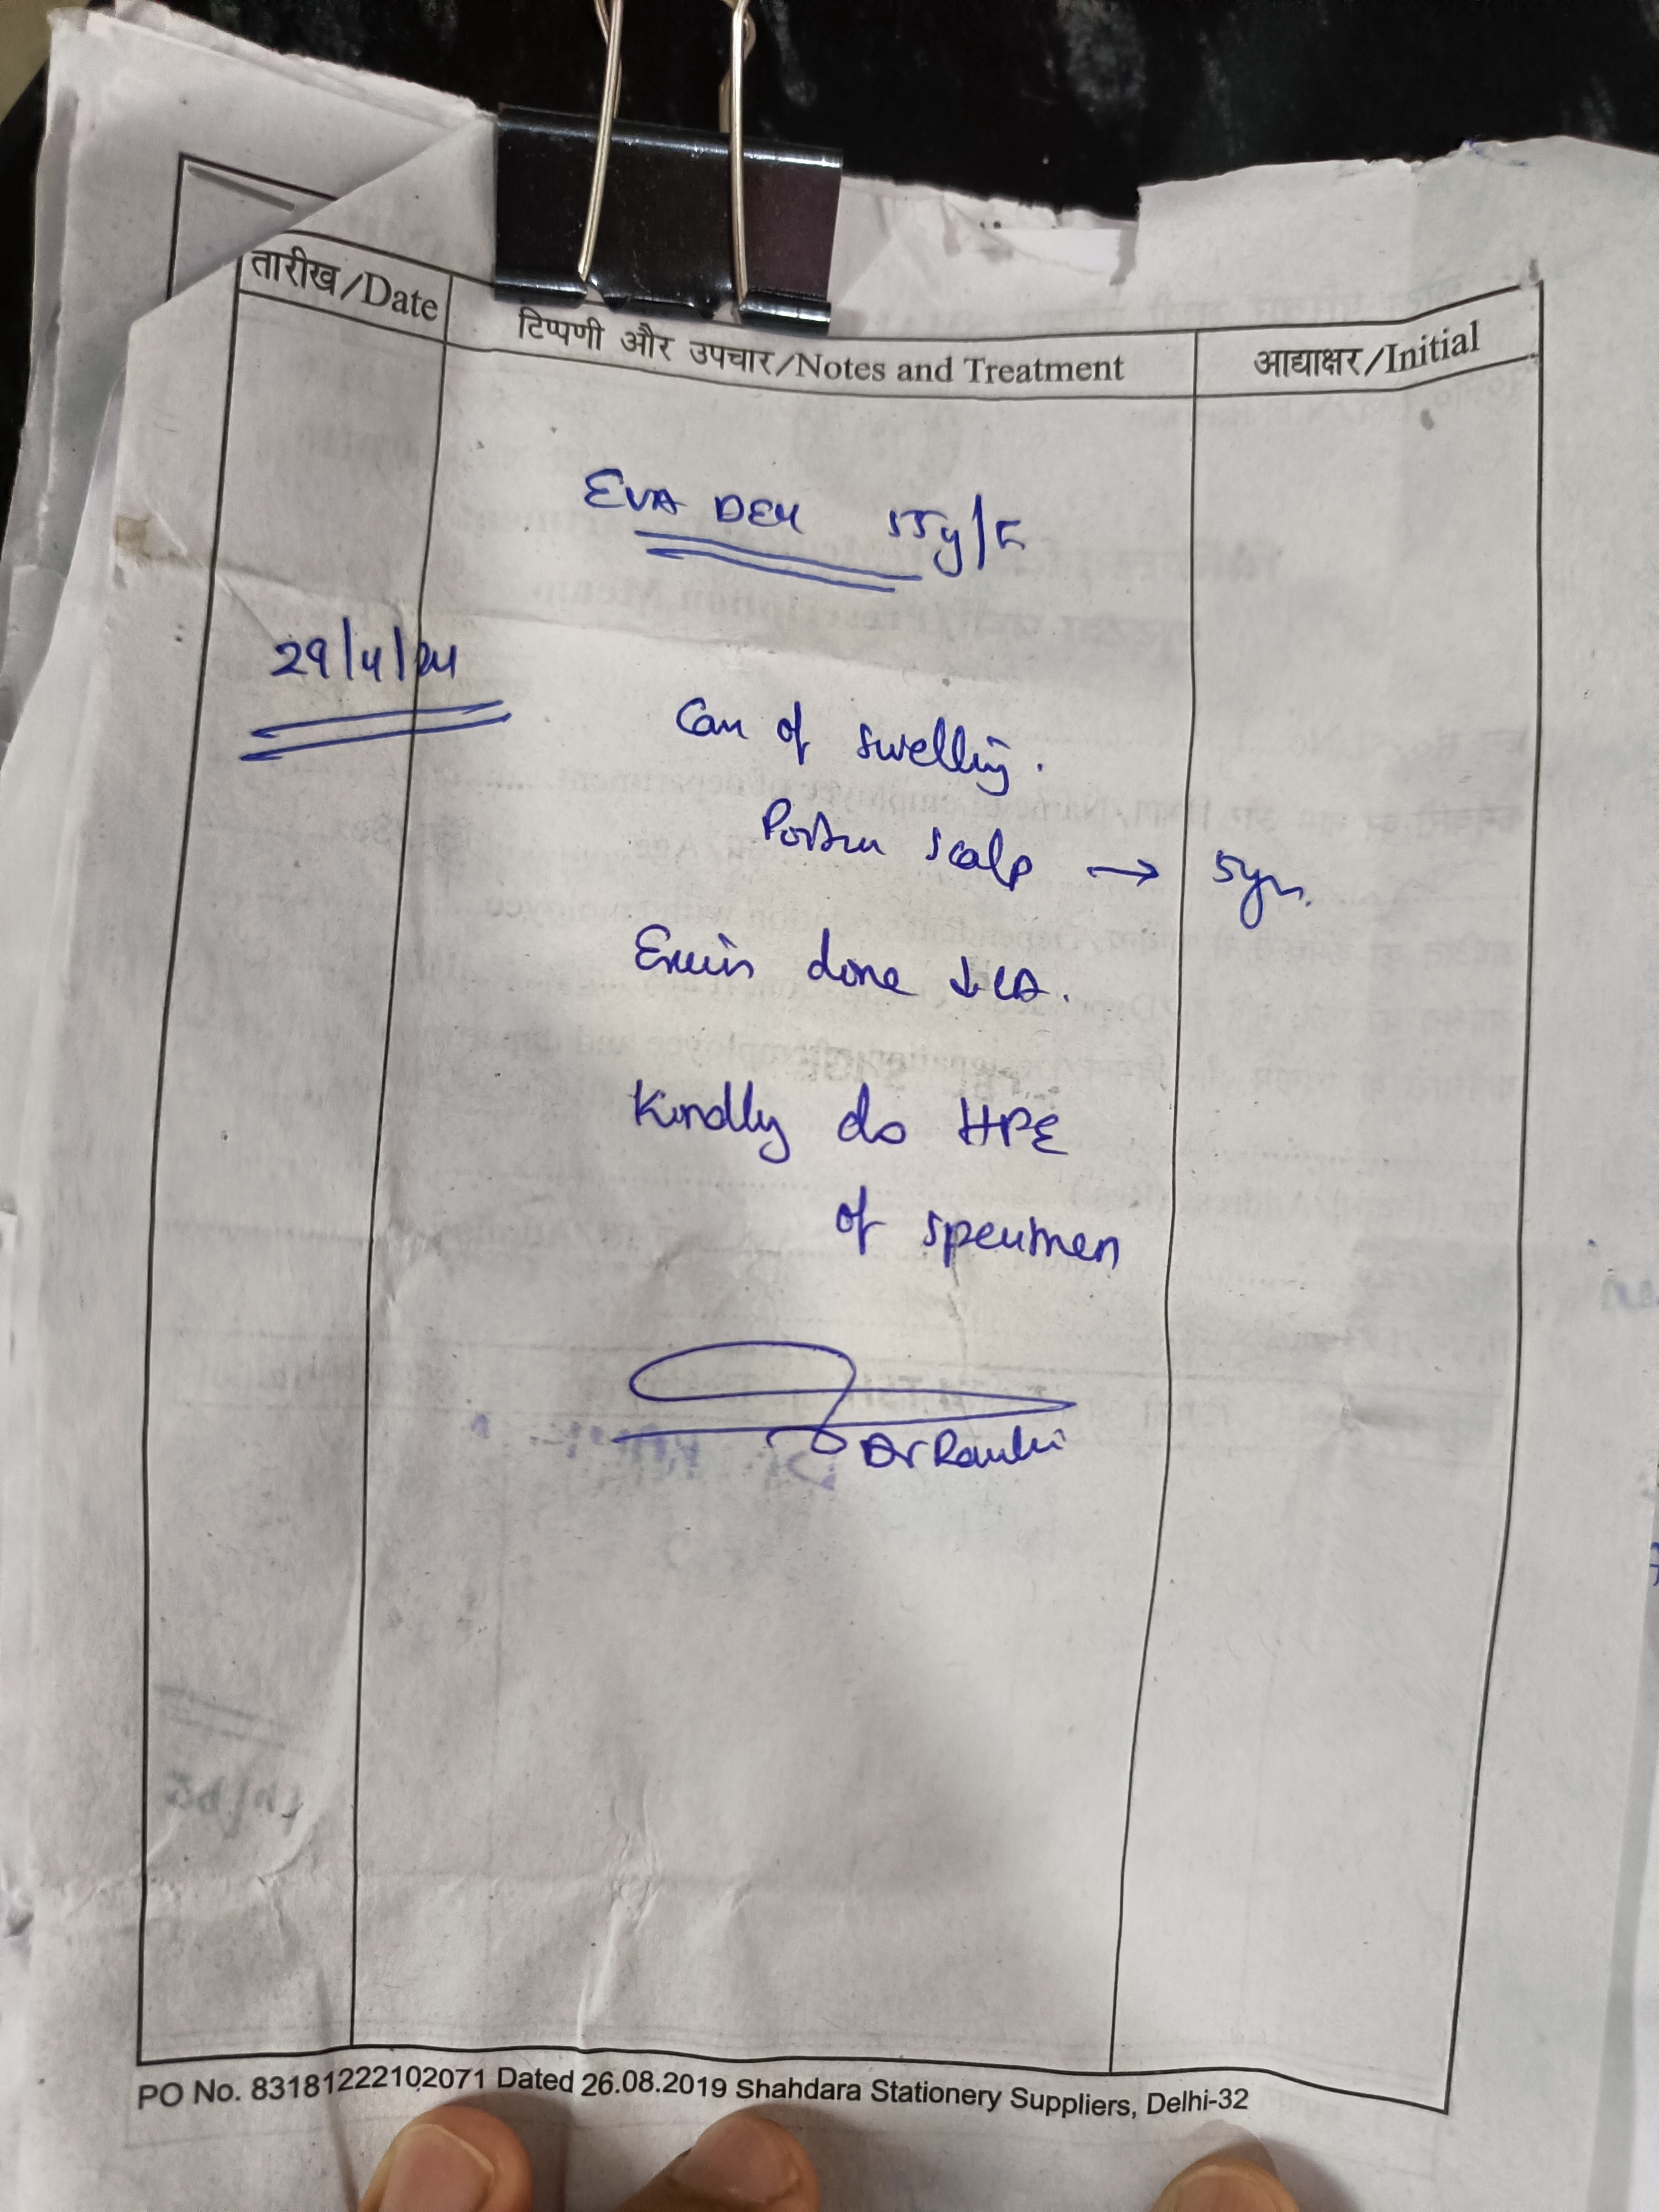 तारीख/Date टिप्पणी और उपचार/Notes and Treatment आद्याक्षर/Initial
EVA DEY 55y/F
29/4/24
Case of swelling.
scalp → 5yrs.
done ↓ LA.
Kindly do HPE
of specimen
Dr
PO No. 83181222102071 Dated 26.08.2019 Shahdara Stationery Suppliers, Delhi-32